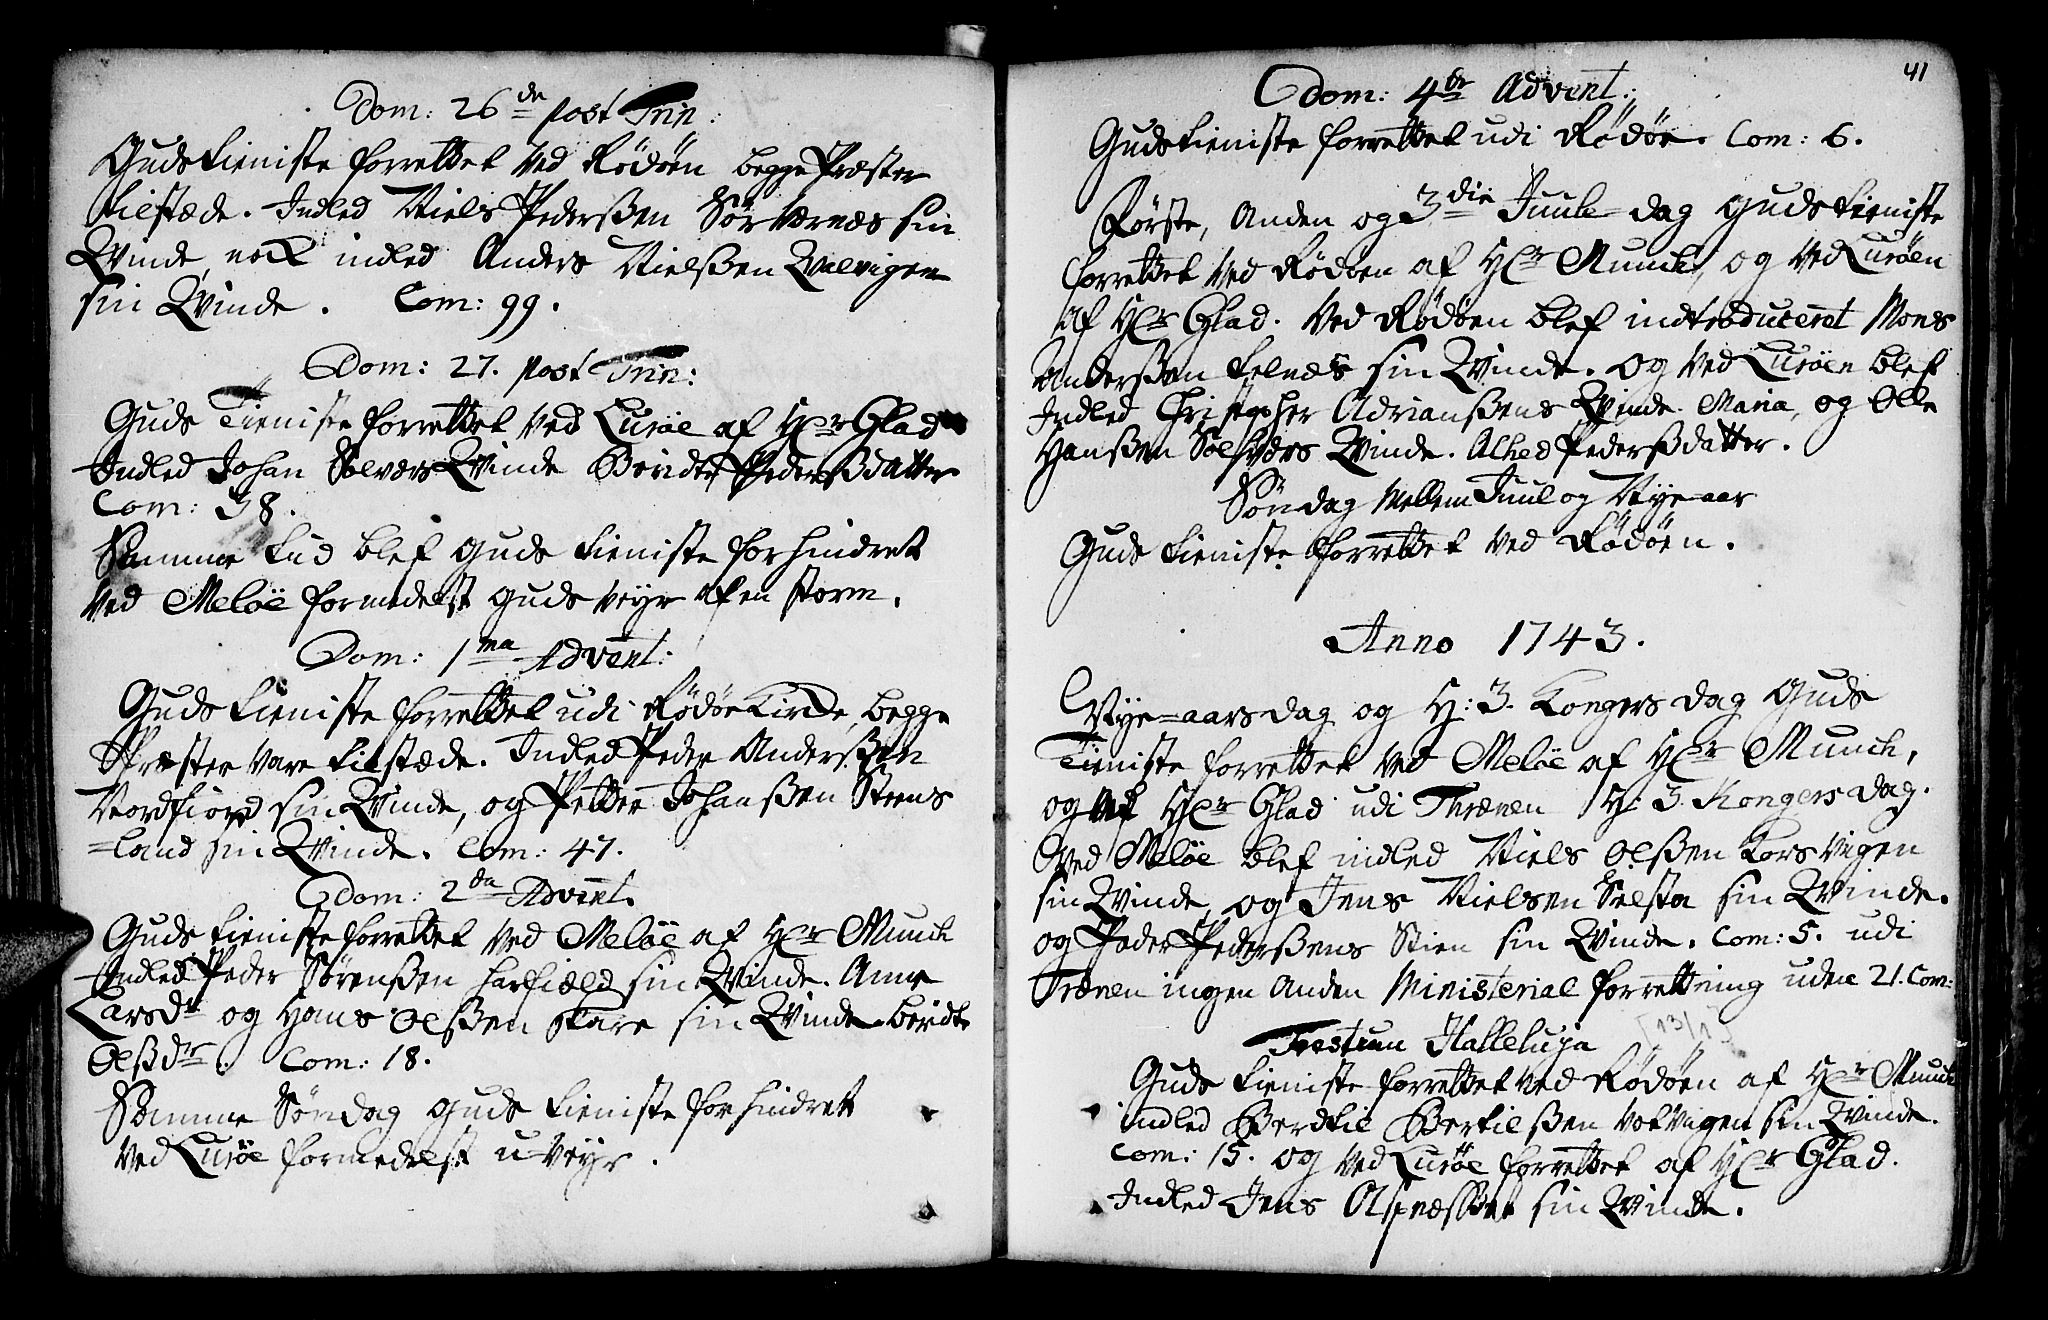 Dom: 26de post Trin:
Guds tieniste forrettet ved Rødøen begge Præster
tilstæde. Indled Niels Pederßen Sørværnæs sin
Qvinde, nock indled Anders Nielßen Qvalvigen
sin Qvinde. Com: 99.
Dom: 27. post Trin:
Guds Tieniste forrettet ved Lurøe af Hr Glad
Indled Johan Solværs Qvinde Beridte Pederßdatter
Com: 38.
Samme tid blef Guds tieniste forhindret
ved Meløe formedelst Guds veyr af en storm.
Dom: 1ma Advent:
Guds tieniste forrettet udi Rødøe Kircke, begge
Præster vare tilstæde. Indled Peder Anderßen
Nordfiord sin Qvinde, og Petter Johanßen Strens
=land sin Qvinde. Com: 47.
Dom: 2da Advent.
Guds tieniste forrettet ved Meløe af Hr Munch
Indled Peder Sørenßen harfield sin Qvinde. Anne
Larsdr og Hans Olßen Skare sin Qvinde Beridte
Olßdr. Com: 18.
Samme Søndag Guds tieniste forhindret
ved Lurøe formedelst u-veyr.
41
Dom: 4de Advent:
Guds tieniste forrettet udi Rødøe. Com: 6.
Første, Anden og 3die Juule-dag Guds tieniste
forrettet ved Rødøen af Hr Munch, og ved Lurøen
af Hr Glad. Ved Rødøen blef indtroduceret Mons
Anderßen telnæs sin Qvinde. og ved Lurøen blef
Indled Christopher Adrianßens Qvinde. Maria, og Olle
Hanßen Solsværs Qvinde. Alhed Pederßdatter.
Søndag Mellem Juul og Nye-aar
Guds tieniste forrettet ved Rødøen.
Anno 1743.
Nye-aarsdag og H: 3. Kongers dag Guds
Tieniste forrettet ved Meløe af Hr Munch,
og af Hr Glad udi Thrænen H: 3. Kongers dag.
Ved Meløe blef indled Niels Olßen Korsvigen
sin Qvinde, og Jens Nielsen Selsta sin Qvinde.
og Peder Pederßens Stien sin Qvinde. Com: 5. udi
Trænen ingen Anden Ministerial forrettning uden 21. Com:
Festum Halleluja [13/1]
Guds tieniste forrettet ved Rødøen af Hr Munch
indled Berdtil Bertilßen Votvigen sin Qvinde.
Com: 15. og ved Lurøe forrettet af Hr Glad.
Indled Jens sin Qvinde.